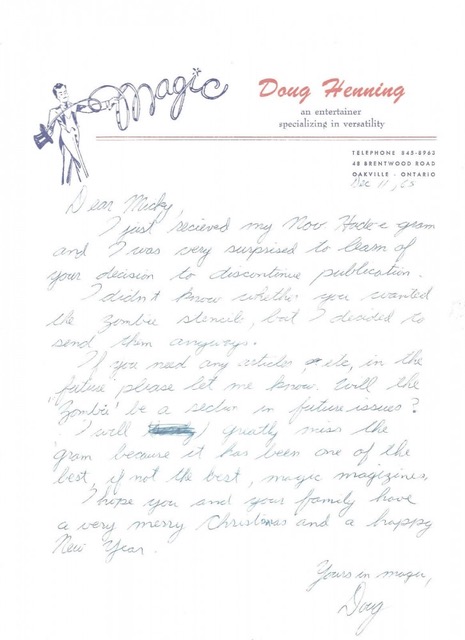 Magic
Doug Henning
an entertainer
specializing in versatility
TELEPHONE 845-8963
48 BRENTWOOD ROAD
OAKVILLE - ONTARIO
Dec 11, 65
Dear Micky,
I just recieved my Nov. gram
and I was very surprised to learn of
your decision to discontinue publication.
I didn't know whether you wanted
the zombie stencils, but I decided to
send them anyways.
If you need any articles, etc, in the
future please let me know. Will the
'Zombie' be a in future issues?
I will greatly miss the
'gram because it has been one of the
best, if not the best, magic magizines.
I hope you and your family have
a very merry Christmas and a happy
New Year.
Yours in magic,
Doug